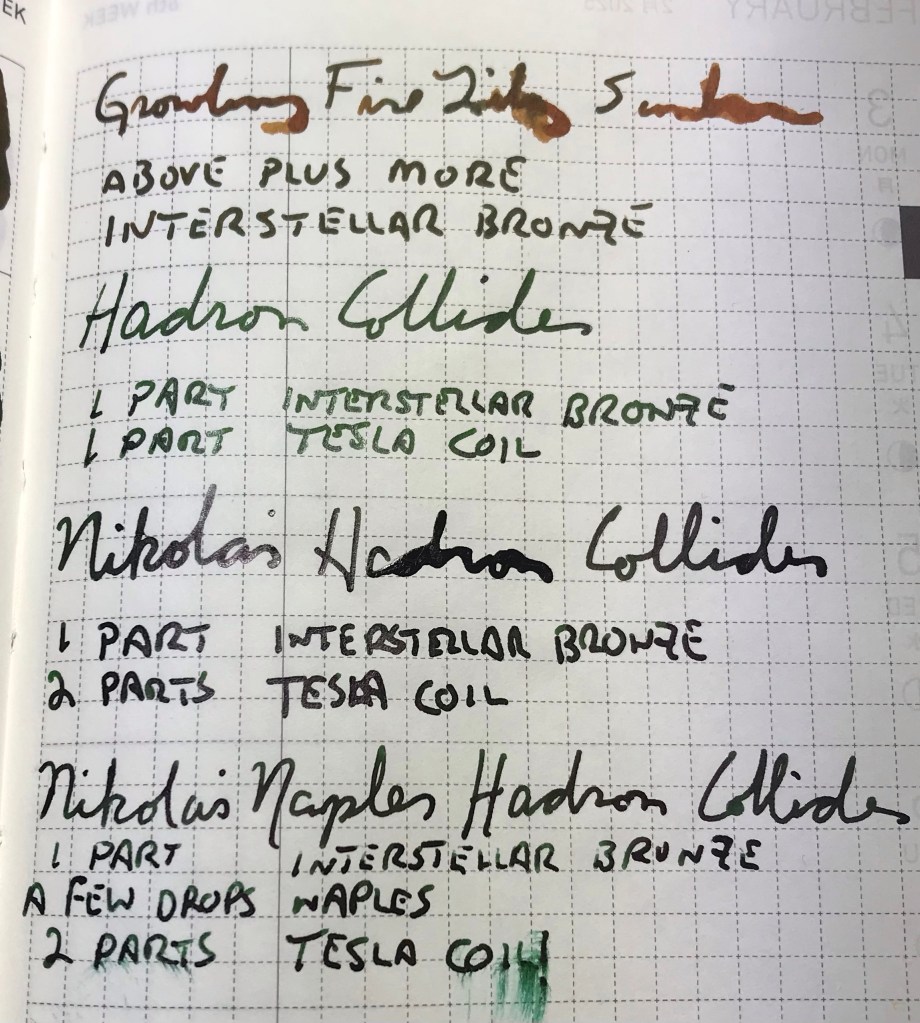 EK
8th WEEK
FEBRUARY
Growling Fire Lily Sundae
ABOVE PLUS MORE
INTERSTELLAR BRONZE
Hadron Collides
1 PART INTERSTELLAR BRONZE
1 PART TESLA COIL
Nikolai's Hadron Collides
1 PART INTERSTELLAR BRONZE
2 PARTS TESLA COIL
Nikolai's Naples Hadron Collides
1 PART INTERSTELLAR BRONZE
A FEW DROPS NAPLES
2 PARTS TESLA COIL
3
MON
4
TUE
5